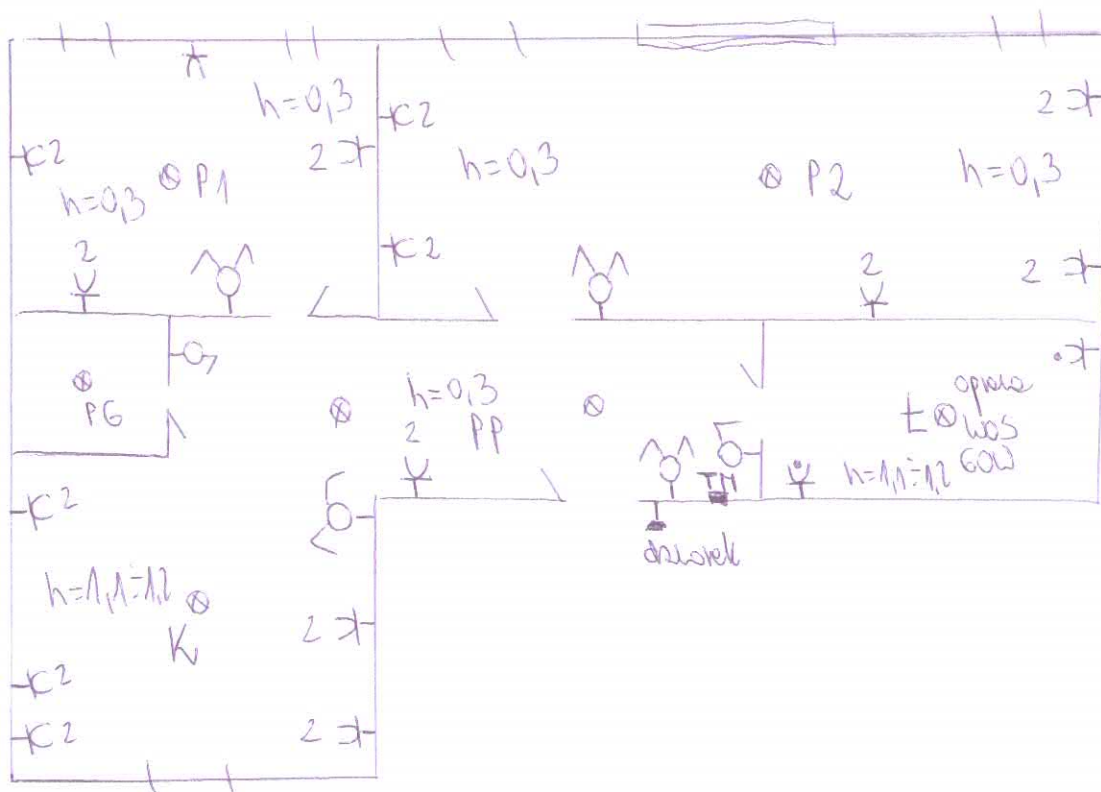 h=0,3
2
2
2
2
h=0,3
P1
h=0,3
P2
h=0,3
2
2
2
2
PG
h=0,3
2
PP
Ł
oprawa
WOS
60W
TM
h=1,1÷1,2
dzwonek
2
h=1,1÷1,2
K
2
2
2
2